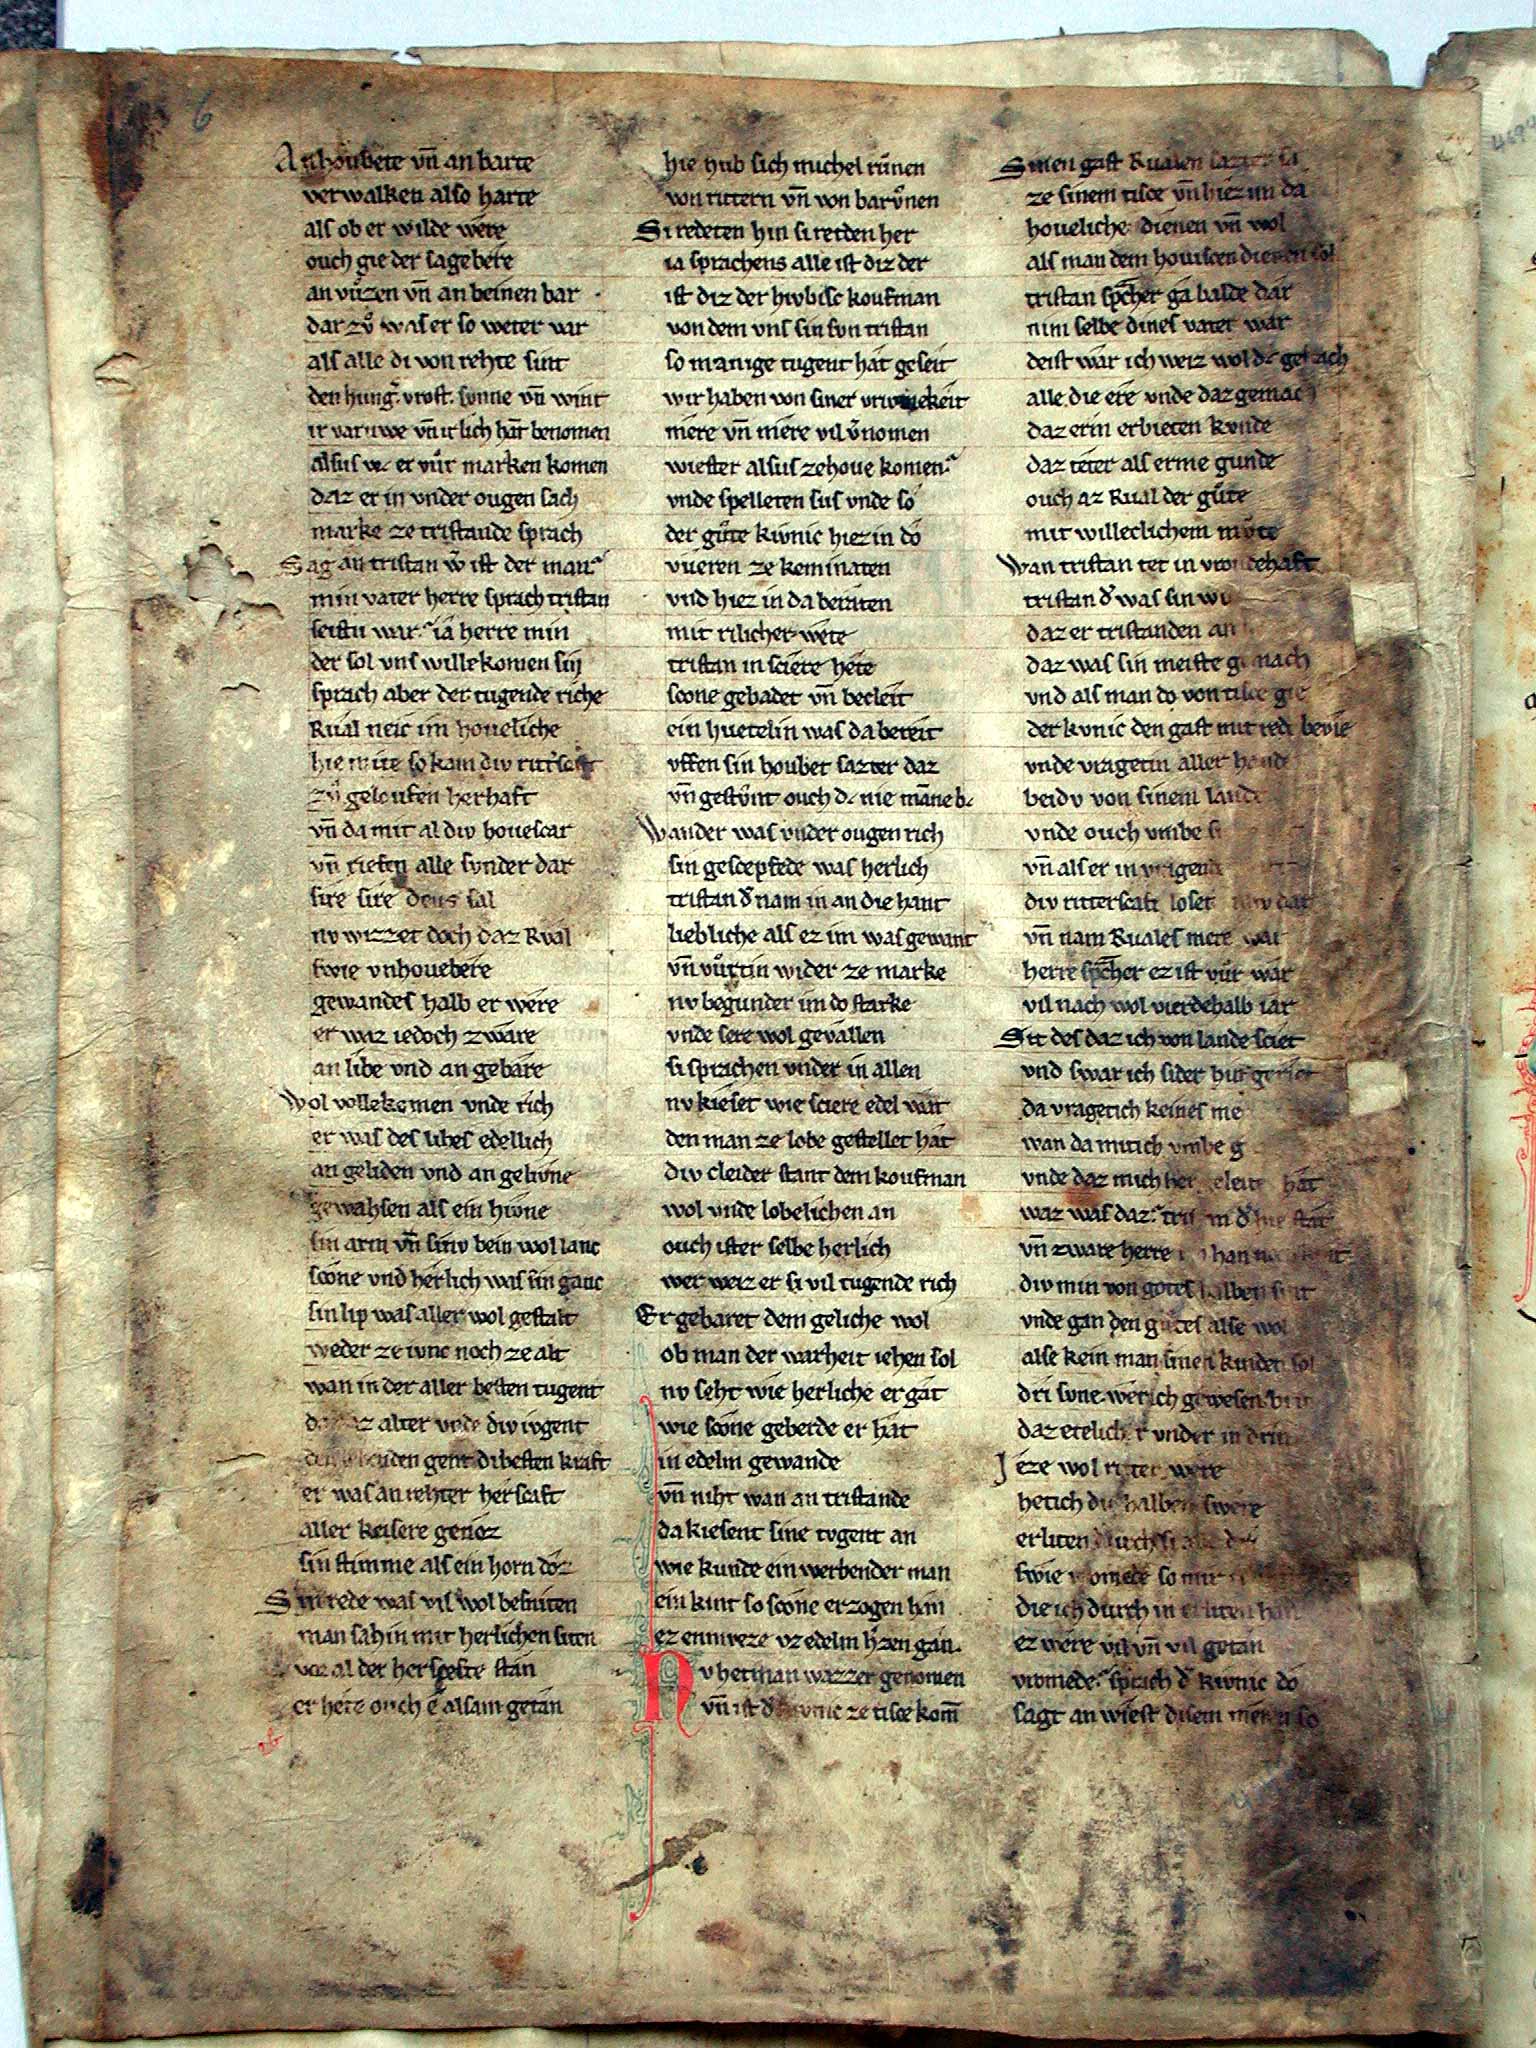 6
An houbete vn̄ an barte
verwalken also harte
als ob er wilde were
ouch gie der sagebere
an vuͦzen vn̄ an beinen bar
dar zuͦ was er so weter var
als alle di von rehte sint
den hung͛. vrost. sunne vn̄ wint
ir varuwe vn̄ ir lich hat benomen
alsus er vuͦr marken komen
daz er in vnder ougen sach
marke ze tristande sprach
Sag an tristan w̾ ist der man
min vater herre sprach tristan
seistu war. ia herre min
der sol vns willekomen sin
sprach aber der tugende riche
Rual neic im houeliche
hie mite so kam div
zuͦ geloufen herhaft
vn̄ da mit al div houescar
vn̄ riefen alle sunder dar
sire sire deus sal
nv wizzet doch daz Rual
swie vnhouebere
gewandes halb er were
er waz iedoch zware
an libe vnd an gebare
Wol vollekomen vnde rich
er was des libes edellich
an geliden vnd an gebune
gewahsen als ein hivne
sin arm vn̄ sinv bein wol lanc
scone vnd herlich was sin ganc
sin lip was aller wol gestalt
weder ze ivnc noch ze alt
wan in der aller besten tugent
alter vnde div ivgent
gent di besten kraft
er was an rehter herscaft
aller keisere genoz
sin stimme als ein horn doz
Sin rede was vil wol besniten
man sah in mit herlichen siten
vor al der herscefte stan
er hete ouch e alsam getan
hie hub sich michel runen
von rittern vn̄ von baruͦnen
Si redeten hin si retden her
ia sprachens alle ist diz der
ist diz der hivbisc koufman
von dem vns sin sun tristan
so manige tugent hat geseit
wir haben von siner
mere vn̄ mere vil v̾nomen
wiester alsus ze houe komen
vnde spelleten sus vnde so
der guͦte kivnic hiez in do
vueren ze keminaten
vnd hiez in da beraten
mit rilicher wete
tristan in sciere hete
scone gebadet vn̄ becleit
ein huetelin was da bereit
vffen sin houbet sazter daz
vn̄ gestuͦnt ouch nie manne b
Wander was vnder ougen rich
sin gescepfede was herlich
tristan d̾ nam in an die hant
liebliche als ez im was gewant
vn̄ vuͦrtin wider ze marke
nv begunder im do starke
vnde sere wol gevallen
si sprachen vnder in allen
nv kieset wie sciere edel wat
den man ze lobe gestellet hat
div cleider stant dem koufman
wol vnde lobelichen an
ouch ister selbe herlich
wer weiz er si vil tugende rich
Er gebaret dem geliche wol
ob man der warheit iehen sol
nv seht wie herliche er gat
wie scone geberde er hat
in edelm gewande
vn̄ niht wan an tristande
da kiesent sine tvgent an
wie kunde ein werbender man
ein kint so scone erzogen han
ez enmveze vz edelm h̾zen gan.
Nv het man wazzer genomen
vn̄ ist d̾ kivnic ze tisce kom̄
Sinen gast Rualen sazter sa
ze sinem tisce vn̄ hiez im da
houeliche dienen vn̄ wol
als man dem houiscen dienen sol
tristan spͣcher ga balde dar
nim selbe dines vater war
deist war ich weiz wol
alle die ere vnde daz gemach
daz erm erbieten kvnde
daz teter als erme gunde
ouch az Rual der guͦte
mit willeclichem muͦte
Wan tristan tet in
tristan d̾ was sin
daz er tristanden an
daz was sin meiste
vnd als man do von tisce gie
der kvnic den gast mit rede bevie
vnde vragetin aller hande
beidv von sinem lande
vnde ouch vmbe
vn̄ als er in
div ritterscaft
vn̄ nam Ruales mere war
herre spͣcher ez ist vuͦr war
vil nach wol vierdehalb iar
Sit des daz ich von lande sciet
vnd swar ich sider
da vragetich keines me
wan da mitich vmbe g
vnde daz mich her hat
waz was daz. d̾ hie stat
vn̄ zware herre han
div min von gotes halben sint
vnde gan den guͦtes alse wol
alse kein man sinen kinden sol
dri sune. werich gewesen bi in
daz etelicher vnder in drin
Ieze wol ritter were
hetich div halben swere
erliten
swie so mir
die ich durch in erliten han
ez were vil vn̄ vil getan
vromede. sprach d̾ kivnic do
sagt an wiest disem